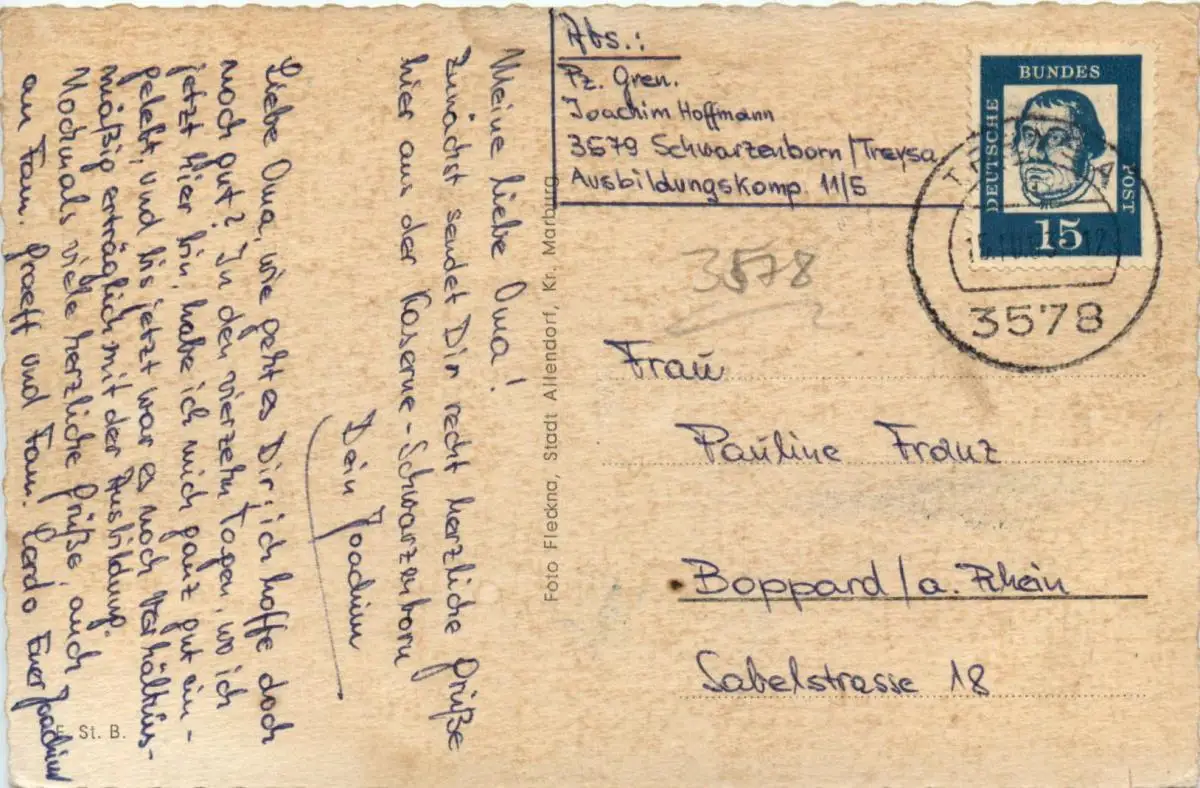 Meine liebe Oma!
Zunächst sendet Dir recht herzliche Grüße
hier aus der Kaserne-Schwarzenborn
Dein Joachim
Liebe Oma, wie geht es Dir; ich hoffe doch
noch gut? In den vierzehn Tagen, wo ich
jetzt hier bin, habe ich mich ganz gut ein-
gelebt, und bis jetzt war es noch verhältnis-
mäßig erträglich mit der Ausbildung.
Nochmals viele herzliche Grüße, auch
an Fam. Graeff und Fam. Euer Joachim
St. B.
Foto Fleckna, Stadt Allendorf, Kr. Marburg
Abs.:
Pz. Gren.
Joachim Hoffmann
3579 Schwarzenborn/Treysa
Ausbildungskomp. 11/5
DEUTSCHE
BUNDES
POST
15
3578
3578
Frau
Pauline Franz
Boppard/a. Rhein
Sabelstrasse 18